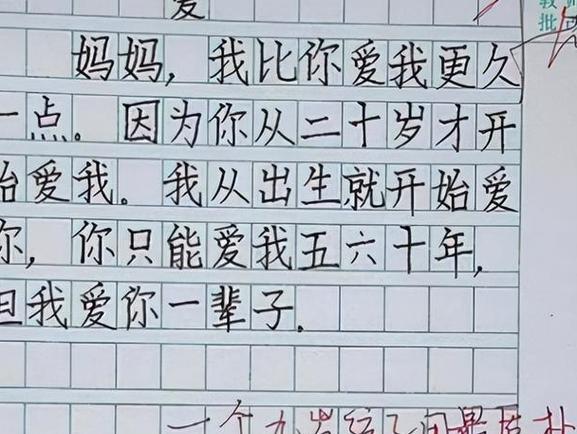 爱
妈妈，我比你爱我更久
一点。因为你从二十岁才开
始爱我。我从出生就开始爱
你，你只能爱我五六十年，
但我爱你一辈子。
批
一个九岁